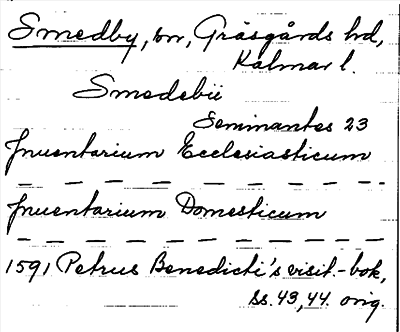 Smedby, sn, Gräsgårds hd,
Kalmar l.
Smedebii
Seminantes 23
Inventarium Ecclesiasticum
— — — — — — — — — —
Inventarium Domesticum
— — — — — — — — — —
1591 Petrus Benedicti's visit.-bok,
ss. 43, 44. orig.